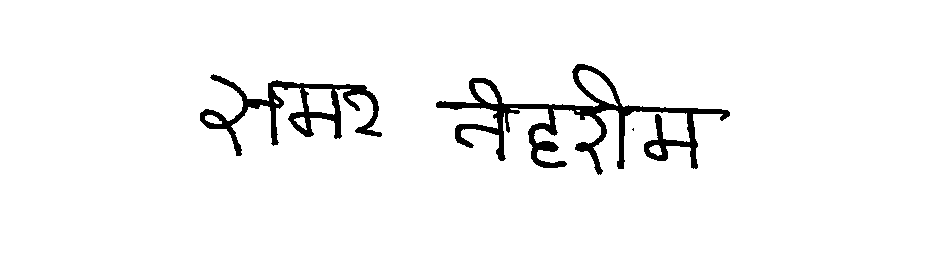 समर तेहरीम